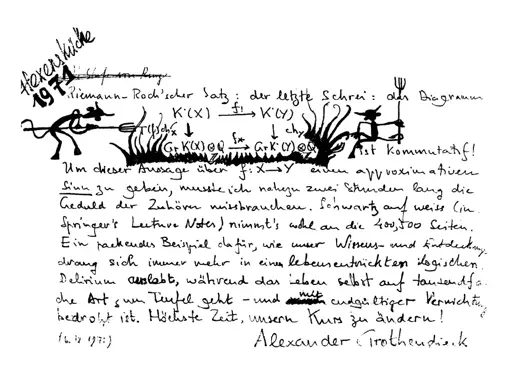 Hexenküche
1971
Riemann-Roch'scher Satz: der letzte Schrei: das Diagramm
K˙(X) f! K˙(Y)
ch
Gr K˙(X)⊗Q f* Gr K˙(Y)⊗Q
ist kommutatif!
Um dieser Aussage über f: X→Y einen approximativen
Sinn zu geben, musste ich nahezu zwei Stunden lang die
Geduld der Zuhörer missbrauchen. Schwartz auf weiss (in
Springer's Lecture Notes) nimmt's wohl an die 400, 500 Seiten.
Ein packendes Beispiel dafür, wie unser Wissens- und Entdeckungs
drang sich immer mehr in einem lebensentrückten logischen
Delirium auslebt, während das Leben selbst auf tausendfa
che Art zum Teufel geht - und mit endgültiger Vernichtung
bedroht ist. Höchste Zeit, unsern Kurs zu ändern!
Alexander Grothendieck